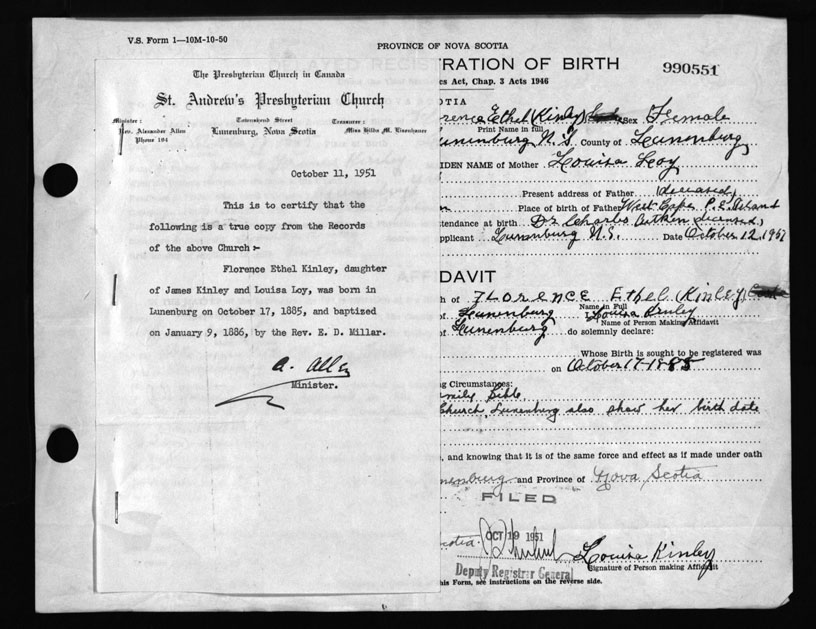 V.S. Form 1—10M-10-50
PROVINCE OF NOVA SCOTIA
TRATION OF BIRTH
990551
cs Act, Chap. 3 Acts 1946
The Presbyterian Church in Canada
St. Andrew's Presbyterian Church
Minister:
Rev. Alexander Allen
Phone 194
Townshend Street
Lunenburg, Nova Scotia
Treasurer:
Miss Hilda M. Eisenhauer
October 11, 1951
This is to certify that the
following is a true copy from the Records
of the above Church :-
Florence Ethel Kinley, daughter
of James Kinley and Louisa Loy, was born in
Lunenburg on October 17, 1885, and baptized
on January 9, 1886, by the Rev. E. D. Millar.
A. Allen
Minister.
OTIA
rence Ethel (Kinley) Sex Female
Print Name in full
unenburg N.S. County of Lunenburg
IDEN NAME of Mother Louisa Loy
Present address of Father (deceased)
Place of birth of Father West Cape P.E. Island
ttendance at birth Dr Charles Aitken (deceased)
pplicant Lunenburg N.S. Date October 12, 1951
DAVIT
h of Florence Ethel (Kinley)
Name in Full
of Lunenburg I, Louisa Kinley
Name of Person Making Affidavit
of Lunenburg do solemnly declare:
Whose Birth is sought to be registered was
on October 17-1885
ng Circumstances:
mily Bible
Church, Lunenburg also show her birth date
, and knowing that it is of the same force and effect as if made under oath
nenburg and Province of Nova Scotia
FILED
cotia. OCT 19 1951
Louisa Kinley
Deputy Registrar General
Signature of Person making Affidavit
his Form, see instructions on the reverse side.